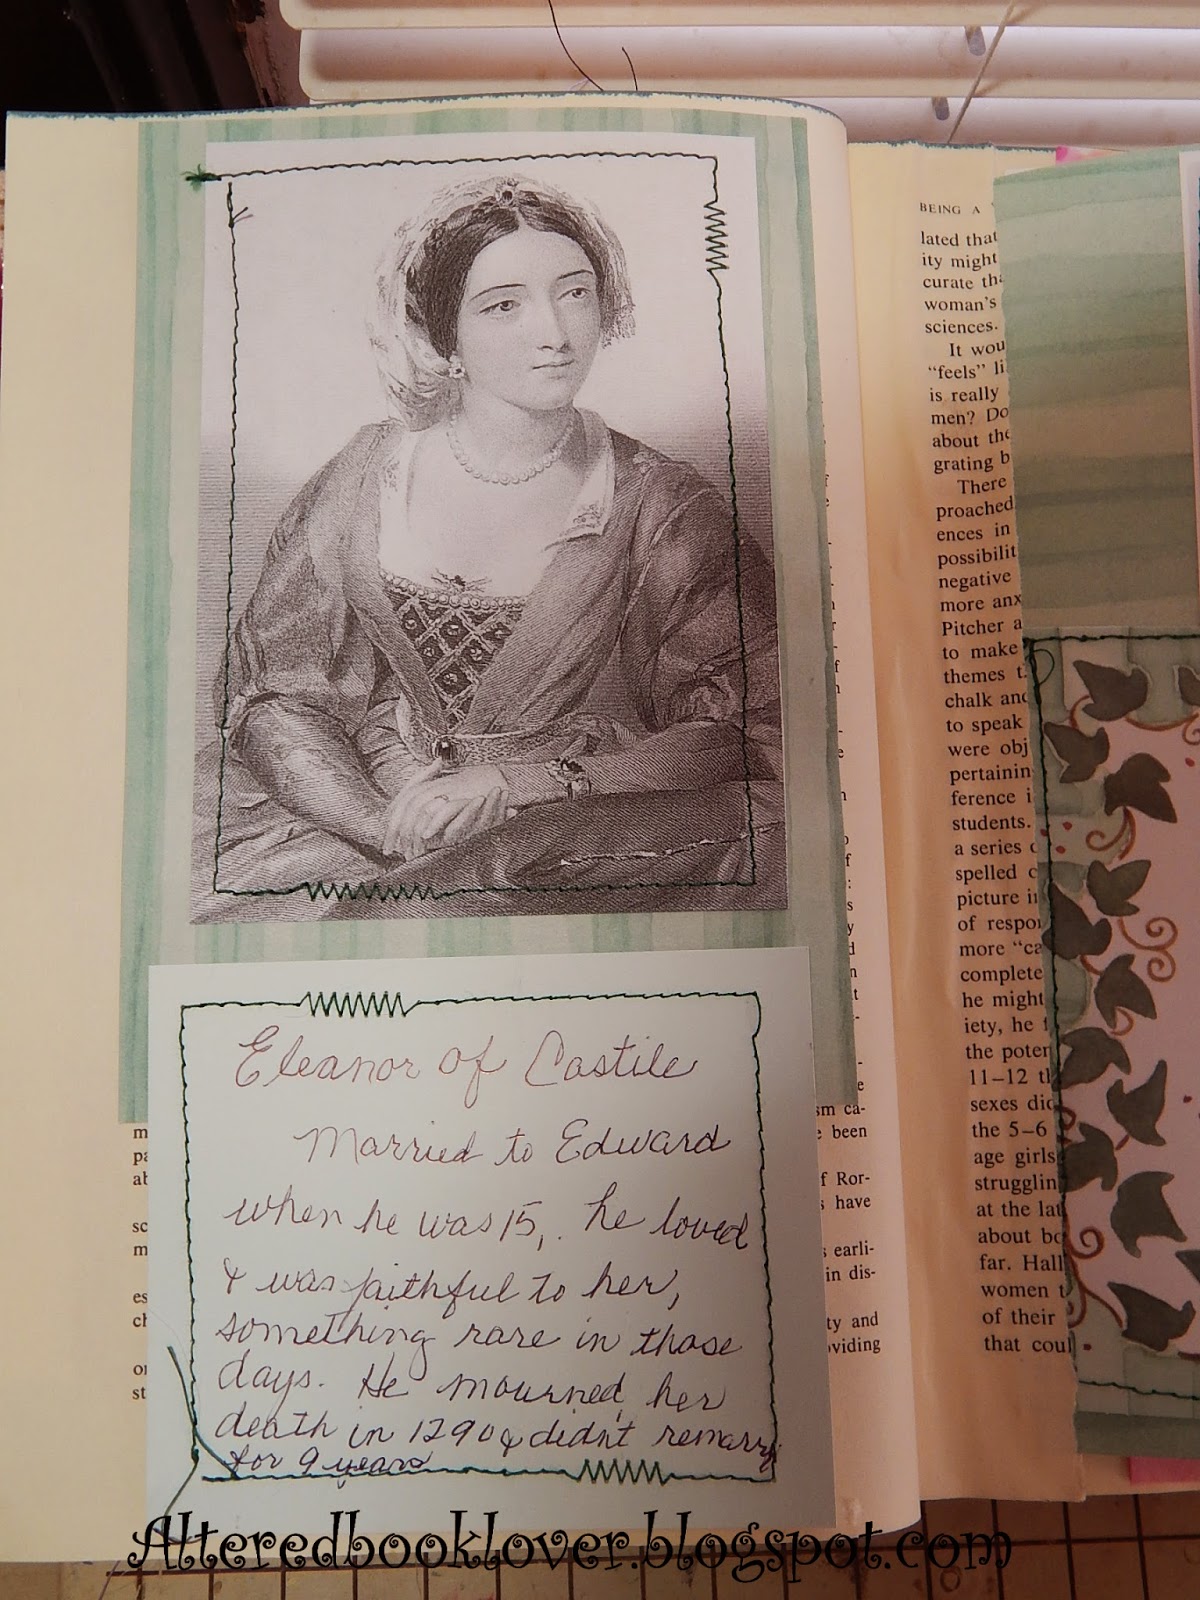 Eleanor of Castile
Married to Edward
when he was 15,. he loved
& was faithful to her,
something rare in those
days. He mourned her
death in 1290 & didn't remarry
for 9 years
m
pa
ab
sc
m
es
ch
or
st
sm ca-
e been
f Ror-
s have
s earli-
in dis-
ty and
oviding
BEING A
lated that
ity might
curate tha
woman's
sciences.
It wou
"feels" li
is really
men? Do
about the
grating b
There
proached
ences in
possibilit
negative
more anx
Pitcher a
to make
themes t
chalk and
to speak
were obj
pertainin
ference i
students.
a series o
spelled c
picture in
of respon
more "ca
complete
he might
iety, he f
the poten
11–12 th
sexes did
the 5–6
age girls
strugglin
at the lat
about bo
far. Hall
women t
of their
that coul
Alteredbooklover.blogspot.com